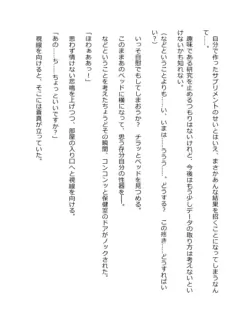 自分で作ったサプリメントのせいとはいえ、まさかあんな結果を招くことになってしまうなん
て――。
趣味である研究を止めるつもりはないけれど、今後はもう少しデータの取り方は考えないとい
けないかも知れない。
（などということよりも……い、いまは……うううっ……。どうする？　この疼き……どうすればい
い？）
いっそ自慰でもしてしまおうか？　チラッとベッドを見つめる。
このままあのベッドに横になって、思う存分自分の性器を――。
などということを考えたちょうどその瞬間、コンコンッと保健室のドアがノックされた。
「ほわぁああっ！」
思わず情けない悲鳴を上げつつ、部屋の入り口へと視線を向ける。
「あの……ち……ちょっといいですか？」
視線を向けると、そこには蒼真が立っていた。